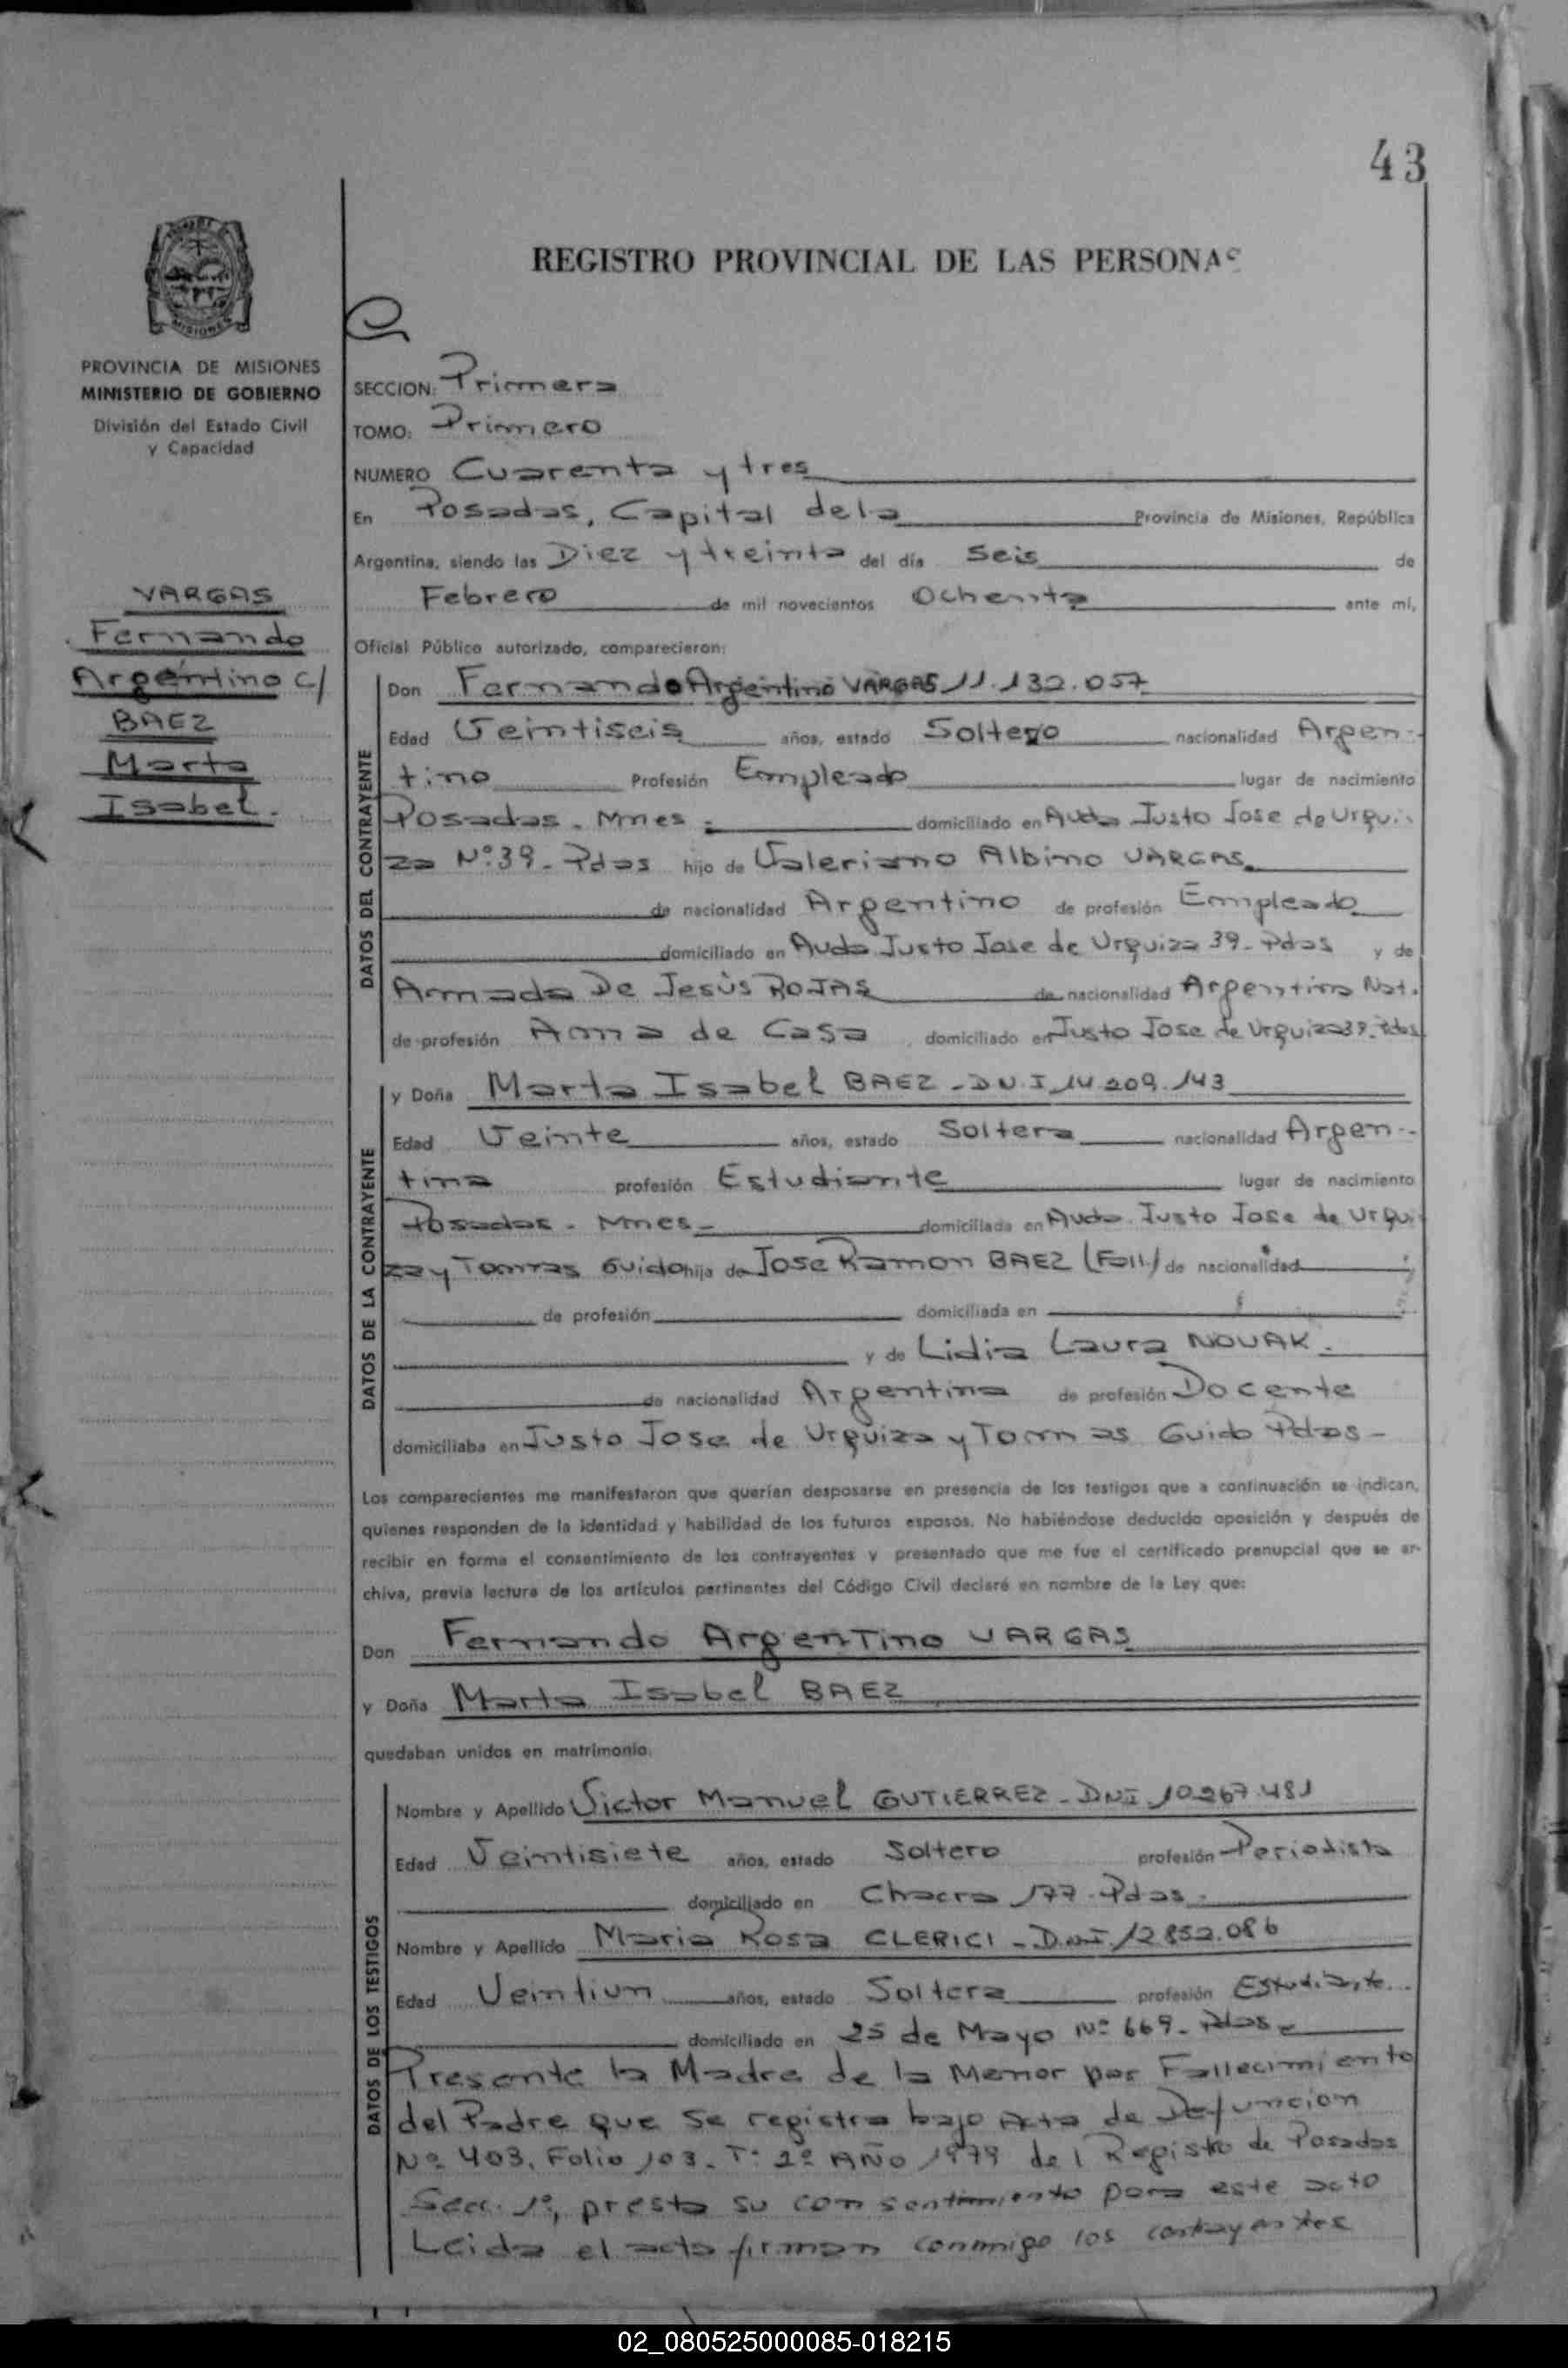 43
REGISTRO PROVINCIAL DE LAS PERSONAS
MISIONES
PROVINCIA DE MISIONES
MINISTERIO DE GOBIERNO
División del Estado Civil
y Capacidad
VARGAS
Fernando
Argentino c/
BAEZ
Marta
Isabel.
SECCION: Primera
TOMO: Primero
NUMERO Cuarenta y tres
En Posadas, Capital de la Provincia de Misiones, República
Argentina, siendo las Diez y treinta del día Seis de
Febrero de mil novecientos Ochenta ante mí,
Oficial Público autorizado, comparecieron:
DATOS DEL CONTRAYENTE
Don Fernando Argentino VARGAS 11.132.057
Edad Veintiseis años, estado Soltero nacionalidad Argen-
tino Profesión Empleado lugar de nacimiento
Posadas. Mnes. domiciliado en Avda Justo Jose de Urqui-
za Nº 39. Pdas hijo de Valeriano Albino VARGAS
de nacionalidad Argentino de profesión Empleado
domiciliado en Avda Justo Jose de Urquiza 39. Pdas y de
Amada De Jesús ROJAS de nacionalidad Argentina Nat.
de profesión Ama de Casa domiciliado en Justo Jose de Urquiza 39. Pdas
DATOS DE LA CONTRAYENTE
y Doña Marta Isabel BAEZ - D.N.I 14.209.143
Edad Veinte años, estado Soltera nacionalidad Argen-
tina profesión Estudiante lugar de nacimiento
Posadas. Mnes- domiciliada en Avda. Justo Jose de Urqui
za y Tomas Guido hija de Jose Ramon BAEZ (Fall) de nacionalidad
de profesión domiciliada en
y de Lidia Laura NOVAK.
de nacionalidad Argentina de profesión Docente
domiciliaba en Justo Jose de Urquiza y Tomas Guido Pdas-
Los comparecientes me manifestaron que querían desposarse en presencia de los testigos que a continuación se indican,
quienes responden de la identidad y habilidad de los futuros esposos. No habiéndose deducido oposición y después de
recibir en forma el consentimiento de los contrayentes y presentado que me fue el certificado prenupcial que se ar-
chiva, previa lectura de los artículos pertinentes del Código Civil declaré en nombre de la Ley que:
Don Fernando Argentino VARGAS
y Doña Marta Isabel BAEZ
quedaban unidos en matrimonio.
DATOS DE LOS TESTIGOS
Nombre y Apellido Victor Manuel GUTIERREZ - DNI 10.267.481
Edad Veintisiete años, estado Soltero profesión Periodista
domiciliado en Chacra 177. Pdas.
Nombre y Apellido Maria Rosa CLERICI - D.N.I. 12.852.086
Edad Veintiun años, estado Soltera profesión Estudiante
domiciliado en 25 de Mayo Nº 669. Pdas-
Presente la Madre de la Menor por Fallecimiento
del Padre que se registra bajo Acta de Defuncion
Nº 403, Folio 103. Tº 2º AÑO 1979 del Registro de Posadas
Secc. 1º, presta su consentimiento para este acto
Leida el acta firman conmigo los contrayentes
02_080525000085-018215